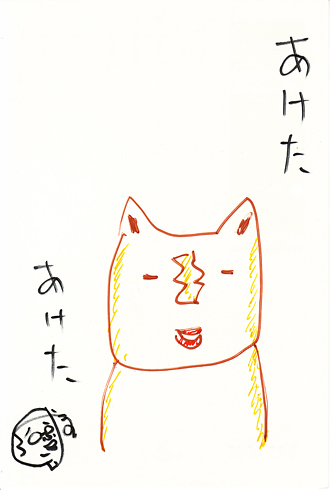 あけた
あけた